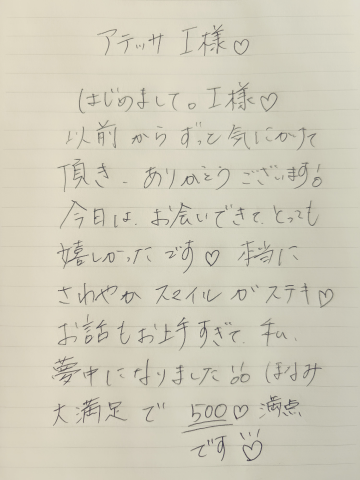 アテッサ I様♡
はじめまして。I様♡
以前からずっと気にかけて
頂き、ありがとうございます!!
今日は、お会いできて、とっても
嬉しかったです♡ 本当に
さわやかスマイルがステキ♡
お話もお上手すぎて、私、
夢中になりました!! ほなみ
大満足で 500♡満点
です!!!♡